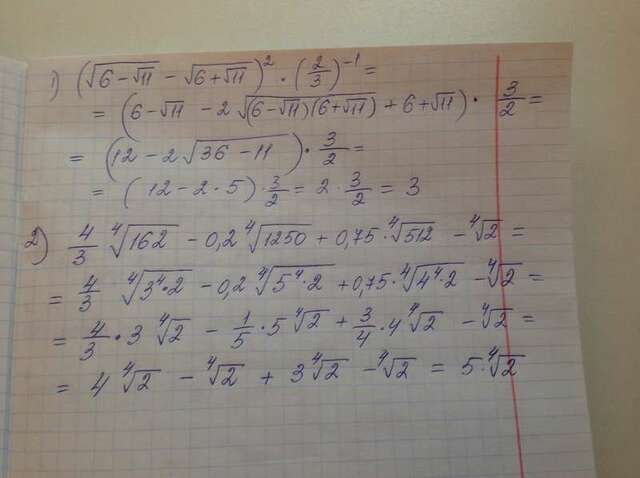 1) (√(6-√11) - √(6+√11))² · (2/3)⁻¹ =
= (6-√11 - 2√((6-√11)(6+√11)) + 6+√11) · 3/2 =
= (12 - 2√(36-11)) · 3/2 =
= (12 - 2·5) · 3/2 = 2 · 3/2 = 3
2) 4/3 ⁴√162 - 0,2 ⁴√1250 + 0,75 · ⁴√512 - ⁴√2 =
= 4/3 ⁴√(3⁴·2) - 0,2 ⁴√(5⁴·2) + 0,75 · ⁴√(4⁴·2) - ⁴√2 =
= 4/3 · 3 ⁴√2 - 1/5 · 5 ⁴√2 + 3/4 · 4 ⁴√2 - ⁴√2 =
= 4 ⁴√2 - ⁴√2 + 3 ⁴√2 - ⁴√2 = 5 · ⁴√2